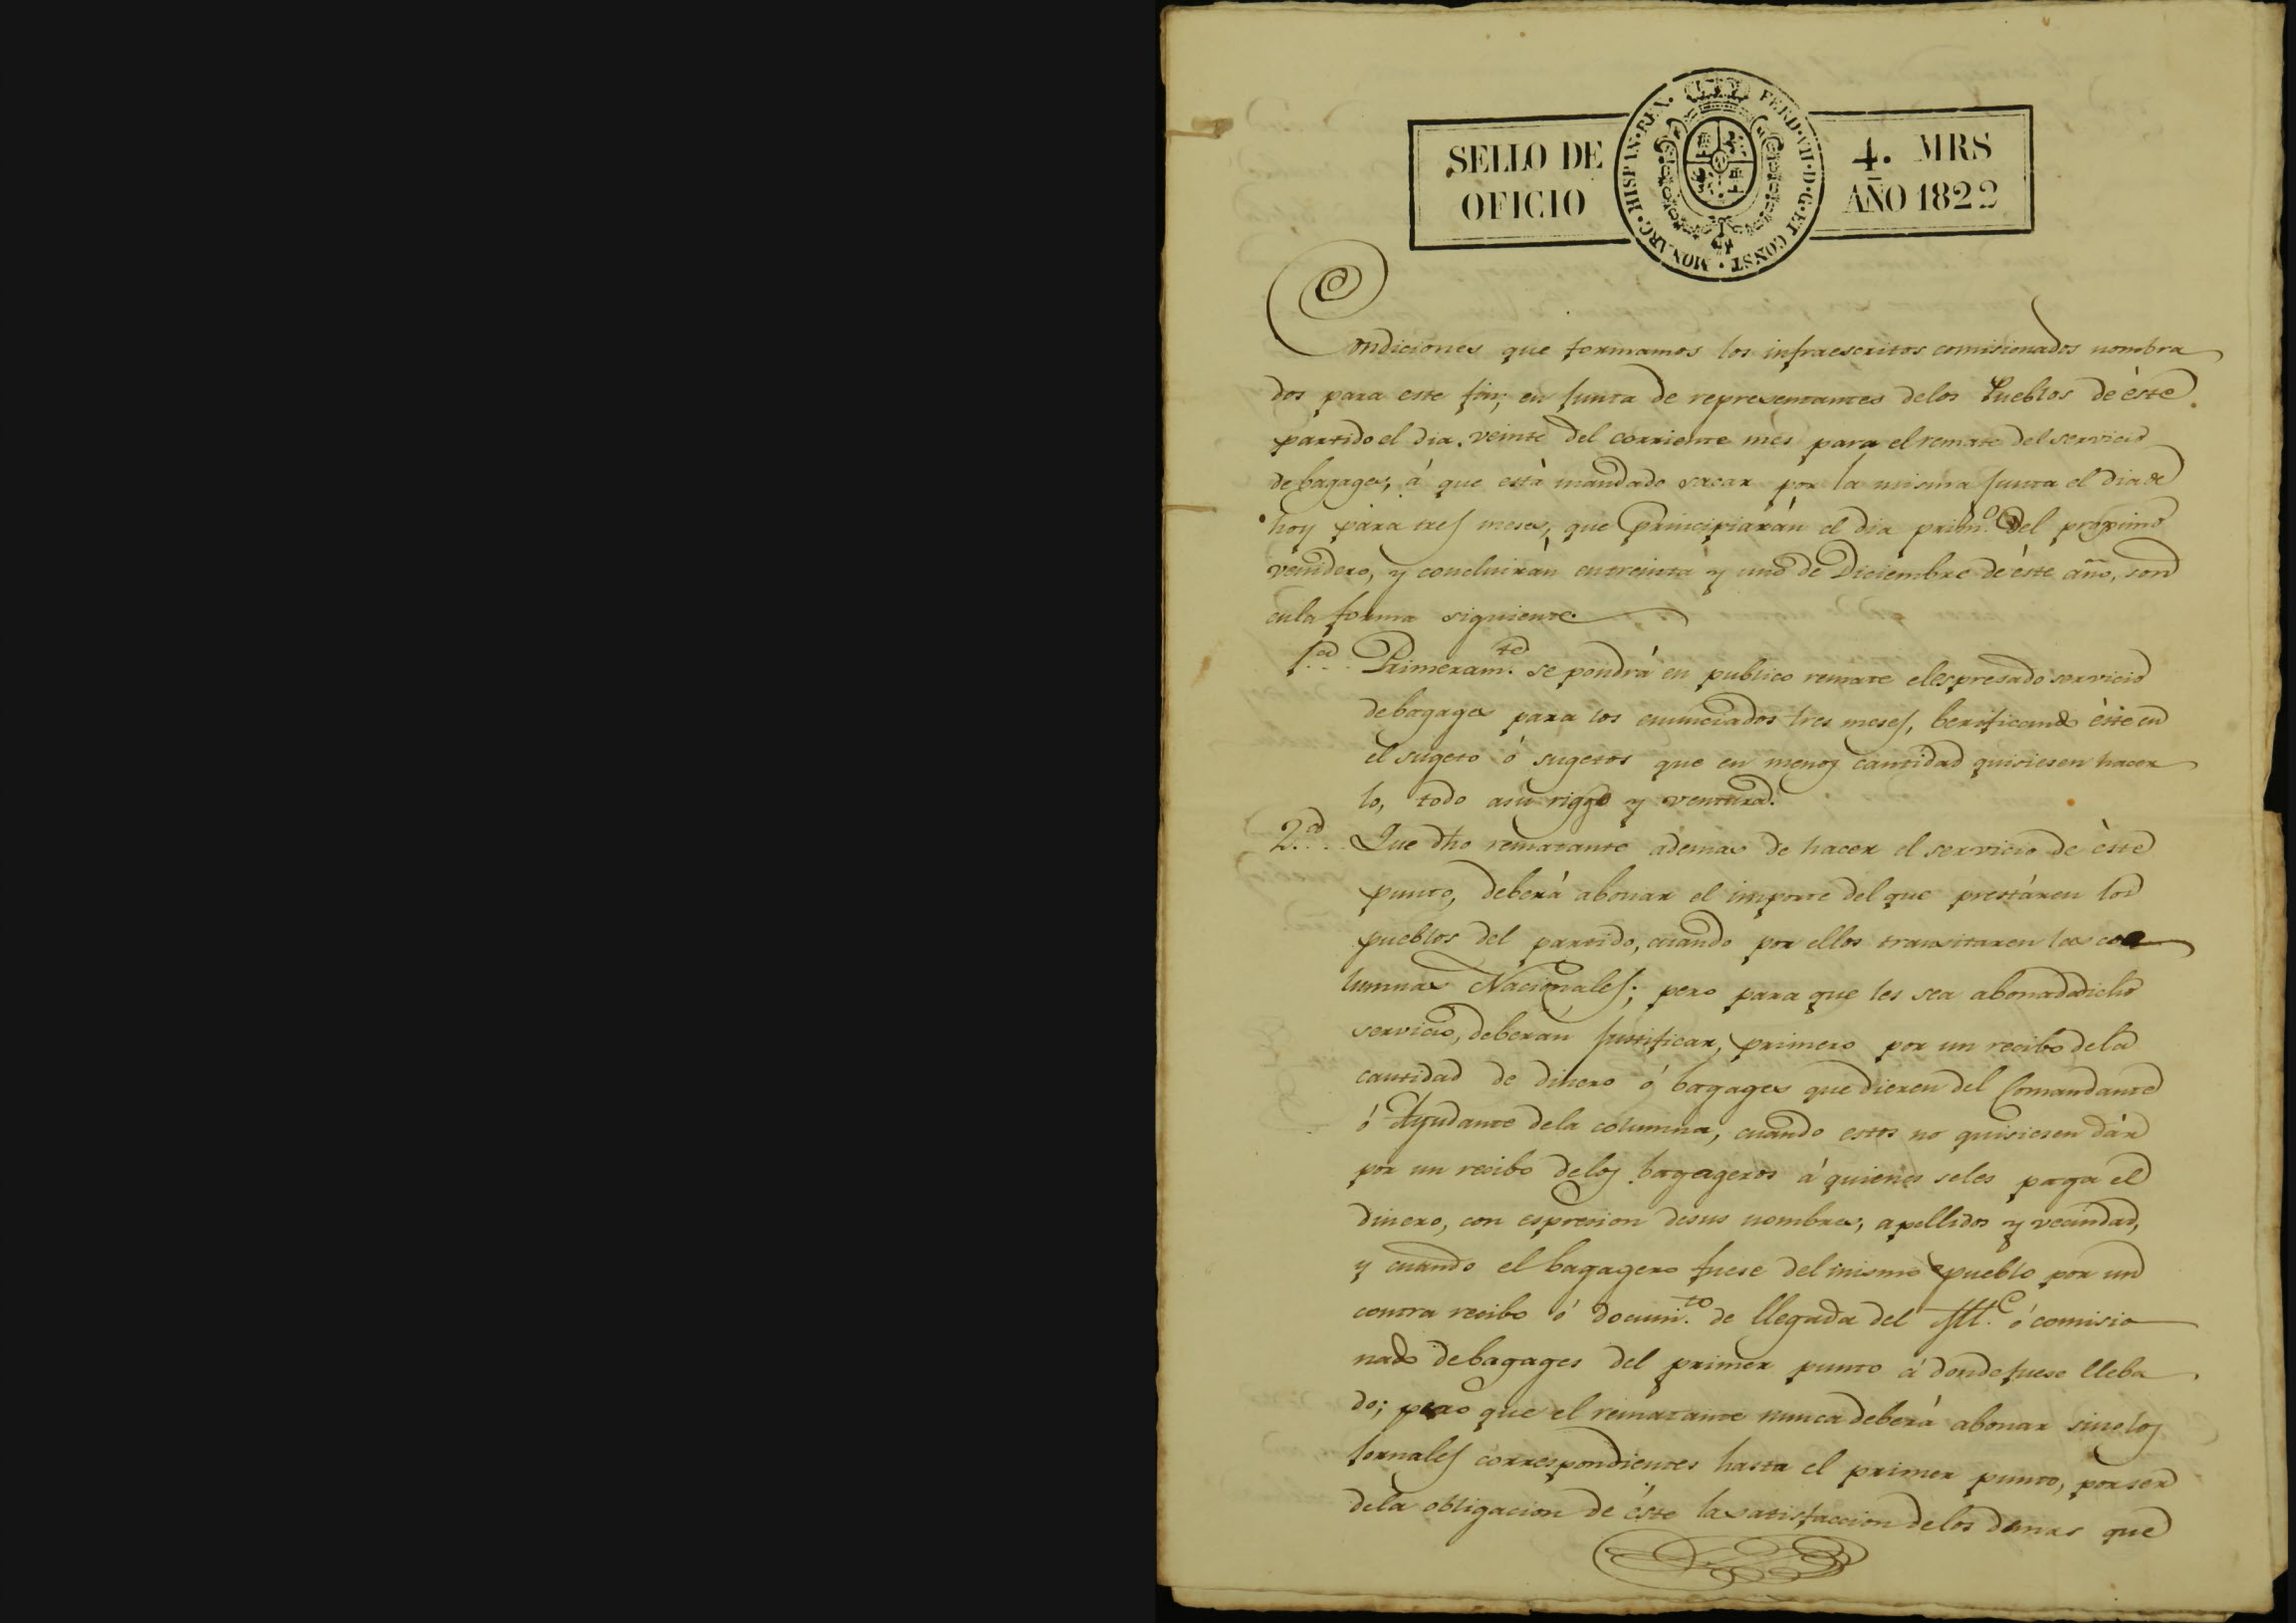 SELLO DE
OFICIO
MONARC. HISPAN. REX. FERD. VII. D. G. ET CONST.
4. MRS
AÑO 1822
Condiciones que formamos los infraescritos comisionados nombra
dos para este fin, en Junta de representantes delos Pueblos de èste
partido el dia veinte del corriente mes para el remate del servicio
de bagages, á que està mandado sacar por la misma Junta el dia de
hoy para tres meses, que principiarán el dia prim.º del proximo
venidero, y concluiràn entreinta y uno de Diciembre de èste año, son
enla forma siguiente.
1.ª Primeram.te se pondrá en publico remate elespresado servicio
debagages para los enunciados tres meses, berificando èste en
el sugeto ó sugetos que en menos cantidad quisiesen hacer
lo, todo asu riggo y ventura.
2.ª Que dho rematante ademas de hacer el servicio de èste
punto, deberà abonar el importe del que prestàren los
pueblos del partido, cuando por ellos transitaren las co
lumnas Nacionales; pero para que les sea abonado dicho
servicio, deberán Justificar, primero por un recibo dela
cantidad de dinero ó bagages que dieren del Comandante
ó Ayudante dela columna, cuando estos no quisiesen dàr
por un recibo delos bagageros á quienes seles paga el
dinero, con espresion desus nombres, apellidos y vecindad,
y cuando el bagagero fuese del mismo pueblo por un
contra recibo ó docum.to de llegada del Alc.e ó comisio
nado debagages del primer punto á donde fuese lleba
do; pero que el rematante nunca deberá abonar sinolos
Jornales correspondientes hasta el primer punto, por ser
dela obligacion de éste la satisfaccion delos demas que